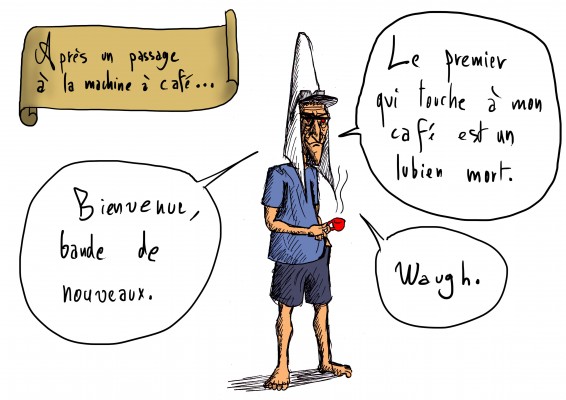 Après un passage
à la machine à café...
Le premier
qui touche à mon
café est un
lubien mort.
Bienvenue,
bande de
nouveaux.
Waugh.